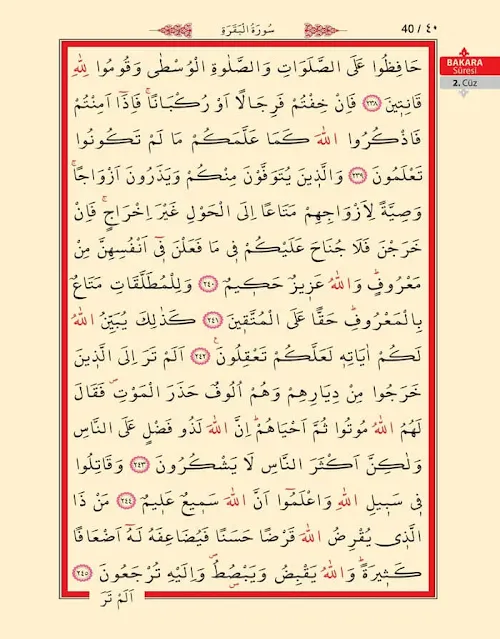 40 / ٤٠
سُورَةُ الْبَقَرَةِ
BAKARA
Sûresi
2. Cüz
حَافِظُوا عَلَى الصَّلَوَاتِ وَالصَّلٰوةِ الْوُسْطٰى وَقُومُوا لِلّٰهِ
قَانِت۪ينَ ﴿٢٣٨﴾ فَاِنْ خِفْتُمْ فَرِجَالًا اَوْ رُكْبَانًاۚ فَاِذَٓا اَمِنْتُمْ
فَاذْكُرُوا اللّٰهَ كَمَا عَلَّمَكُمْ مَا لَمْ تَكُونُوا
تَعْلَمُونَ ﴿٢٣٩﴾ وَالَّذ۪ينَ يُتَوَفَّوْنَ مِنْكُمْ وَيَذَرُونَ اَزْوَاجًاۚ
وَصِيَّةً لِاَزْوَاجِهِمْ مَتَاعًا اِلَى الْحَوْلِ غَيْرَ اِخْرَاجٍۚ فَاِنْ
خَرَجْنَ فَلَا جُنَاحَ عَلَيْكُمْ ف۪ي مَا فَعَلْنَ ف۪ٓي اَنْفُسِهِنَّ مِنْ
مَعْرُوفٍۜ وَاللّٰهُ عَز۪يزٌ حَك۪يمٌ ﴿٢٤٠﴾ وَلِلْمُطَلَّقَاتِ مَتَاعٌ
بِالْمَعْرُوفِۜ حَقًّا عَلَى الْمُتَّق۪ينَ ﴿٢٤١﴾ كَذٰلِكَ يُبَيِّنُ اللّٰهُ
لَكُمْ اٰيَاتِه۪ لَعَلَّكُمْ تَعْقِلُونَ۟ ﴿٢٤٢﴾ اَلَمْ تَرَ اِلَى الَّذ۪ينَ
خَرَجُوا مِنْ دِيَارِهِمْ وَهُمْ اُلُوفٌ حَذَرَ الْمَوْتِۖ فَقَالَ
لَهُمُ اللّٰهُ مُوتُوا ثُمَّ اَحْيَاهُمْۜ اِنَّ اللّٰهَ لَذُو فَضْلٍ عَلَى النَّاسِ
وَلٰكِنَّ اَكْثَرَ النَّاسِ لَا يَشْكُرُونَ ﴿٢٤٣﴾ وَقَاتِلُوا
ف۪ي سَب۪يلِ اللّٰهِ وَاعْلَمُٓوا اَنَّ اللّٰهَ سَم۪يعٌ عَل۪يمٌ ﴿٢٤٤﴾ مَنْ ذَا
الَّذ۪ي يُقْرِضُ اللّٰهَ قَرْضًا حَسَنًا فَيُضَاعِفَهُ لَهُٓ اَضْعَافًا
كَث۪يرَةًۜ وَاللّٰهُ يَقْبِضُ وَيَبْصُۣطُۖ وَاِلَيْهِ تُرْجَعُونَ ﴿٢٤٥﴾
اَلَمْ تَرَ